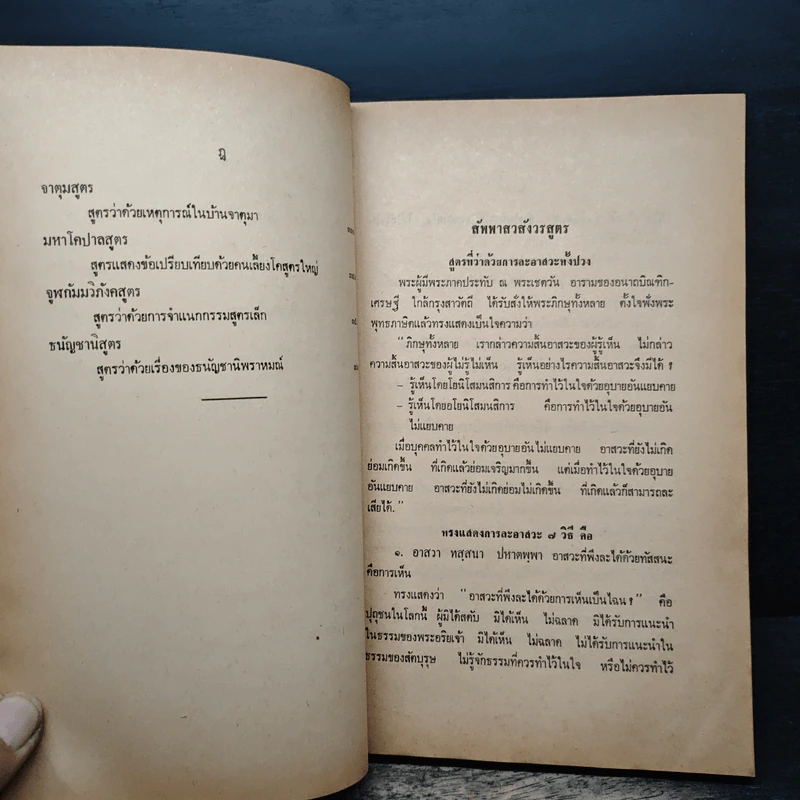 ฎ
จาตุมสูตร
สูตรว่าด้วยเหตุการณ์ในบ้านจาตุมา
มหาโคปาลสูตร
สูตรแสดงข้อเปรียบเทียบด้วยคนเลี้ยงโคสูตรใหญ่
จูฬกัมมวิภังคสูตร
สูตรว่าด้วยการจำแนกกรรมสูตรเล็ก
ธนัญชานิสูตร
สูตรว่าด้วยเรื่องของธนัญชานิพราหมณ์
สัพพาสวสังวรสูตร
สูตรที่ว่าด้วยการละอาสวะทั้งปวง
พระผู้มีพระภาคประทับ ณ พระเชตวัน อารามของอนาถบิณฑิก-
เศรษฐี ใกล้กรุงสาวัตถี ได้รับสั่งให้พระภิกษุทั้งหลาย ตั้งใจฟังพระ
พุทธภาษิตแล้วทรงแสดงเป็นใจความว่า
"ภิกษุทั้งหลาย เรากล่าวความสิ้นอาสวะของผู้รู้เห็น ไม่กล่าว
ความสิ้นอาสวะของผู้ไม่รู้ไม่เห็น รู้เห็นอย่างไรความสิ้นอาสวะจึงมีได้ ?
– รู้เห็นโดยโยนิโสมนสิการ คือการทำไว้ในใจด้วยอุบายอันแยบคาย
– รู้เห็นโดยอโยนิโสมนสิการ คือการทำไว้ในใจด้วยอุบายอัน
ไม่แยบคาย
เมื่อบุคคลทำไว้ในใจด้วยอุบายอันไม่แยบคาย อาสวะที่ยังไม่เกิด
ย่อมเกิดขึ้น ที่เกิดแล้วย่อมเจริญมากขึ้น แต่เมื่อทำไว้ในใจด้วยอุบาย
อันแยบคาย อาสวะที่ยังไม่เกิดย่อมไม่เกิดขึ้น ที่เกิดแล้วก็สามารถละ
เสียได้."
ทรงแสดงการละอาสวะ ๗ วิธี คือ
๑. อาสวา ทสฺสนา ปหาตพฺพา อาสวะที่พึงละได้ด้วยทัสสนะ
คือการเห็น
ทรงแสดงว่า "อาสวะที่พึงละได้ด้วยการเห็นเป็นไฉน ?" คือ
ปุถุชนในโลกนี้ ผู้มิได้สดับ มิได้เห็น ไม่ฉลาด มิได้รับการแนะนำ
ในธรรมของพระอริยเจ้า มิได้เห็น ไม่ฉลาด ไม่ได้รับการแนะนำใน
ธรรมของสัตบุรุษ ไม่รู้จักธรรมที่ควรทำไว้ในใจ หรือไม่ควรทำไว้